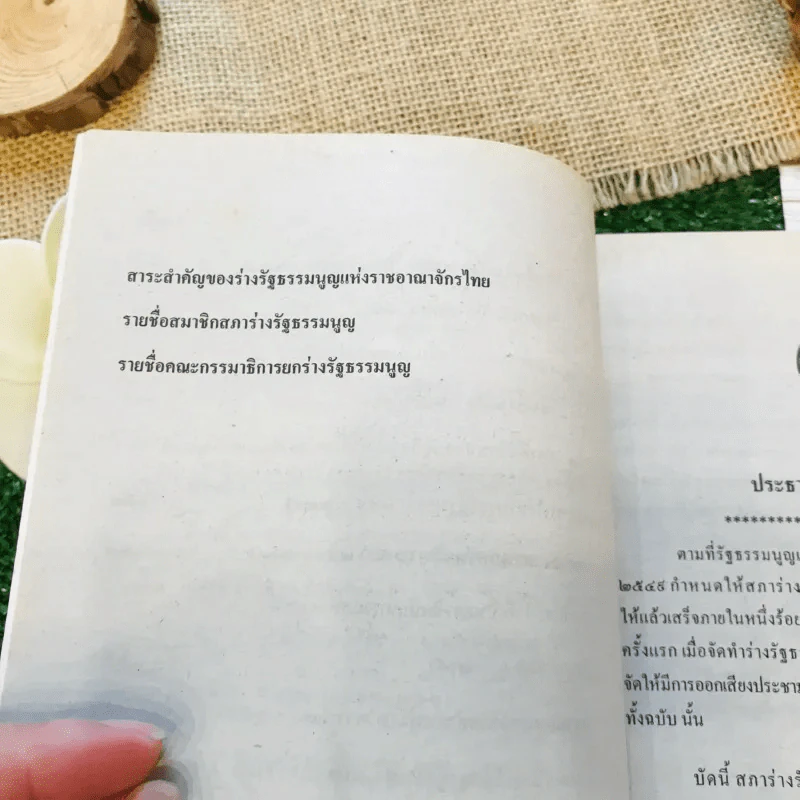 สาระสำคัญของร่างรัฐธรรมนูญแห่งราชอาณาจักรไทย
รายชื่อสมาชิกสภาร่างรัฐธรรมนูญ
รายชื่อคณะกรรมาธิการยกร่างรัฐธรรมนูญ
ประธา
**********
ตามที่รัฐธรรมนูญ
๒๕๔๙ กำหนดให้สภาร่าง
ให้แล้วเสร็จภายในหนึ่งร้อย
ครั้งแรก เมื่อจัดทำร่างรัฐธ
จัดให้มีการออกเสียงประชา
ทั้งฉบับ นั้น
บัดนี้ สภาร่างรั